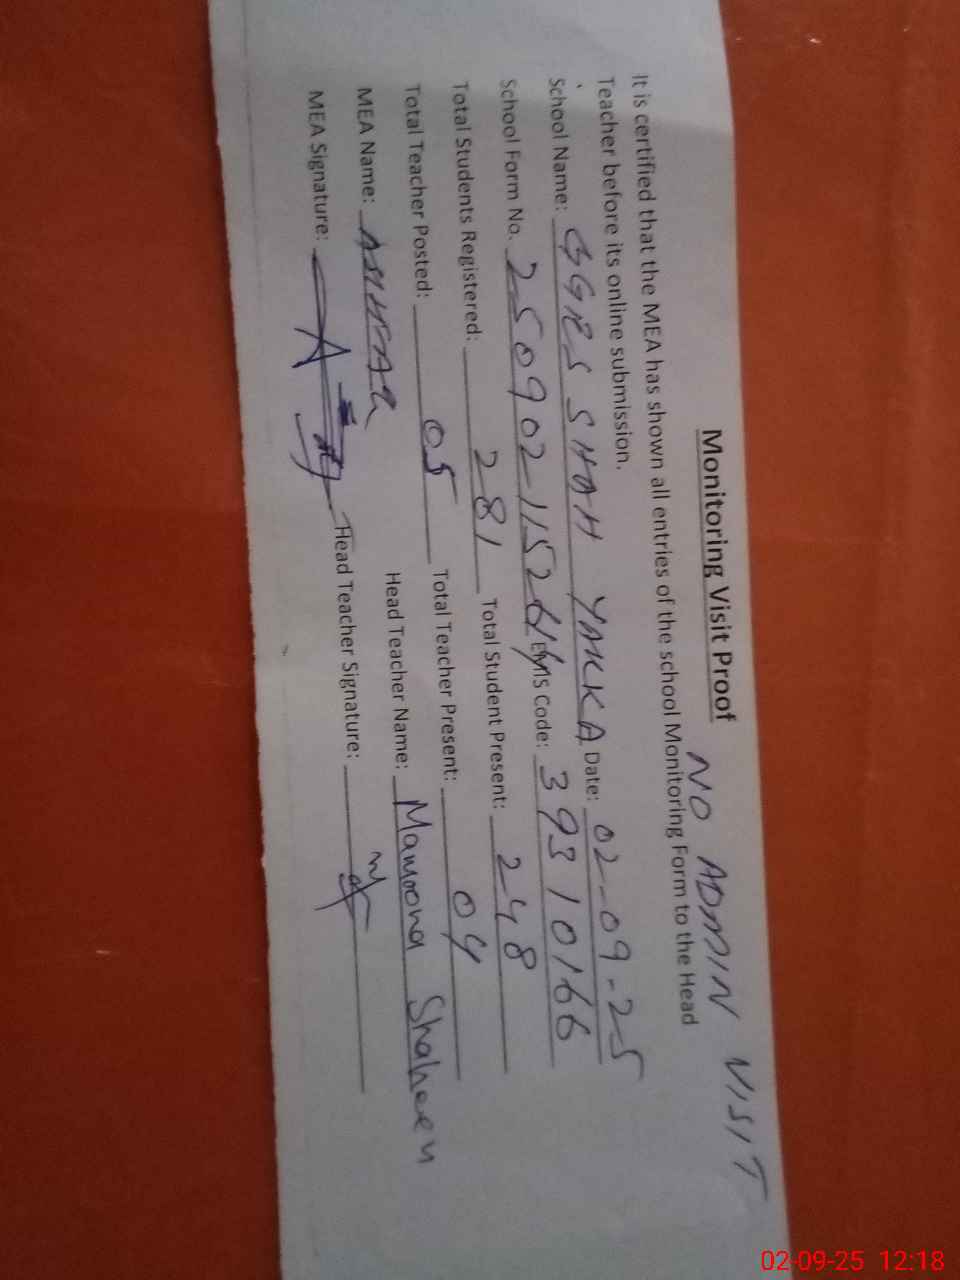 Monitoring Visit Proof
NO ADMIN VISIT
It is certified that the MEA has shown all entries of the school Monitoring Form to the Head
Teacher before its online submission.
School Name: GGPS SHAH YAKKA Date: 02-09-25
School Form No. 250902115264 EMIS Code: 39310166
Total Students Registered: 281 Total Student Present: 248
Total Teacher Posted: 05 Total Teacher Present: 04
MEA Name: Head Teacher Name: Mamoona Shaheen
MEA Signature: Head Teacher Signature:
02-09-25 12:18